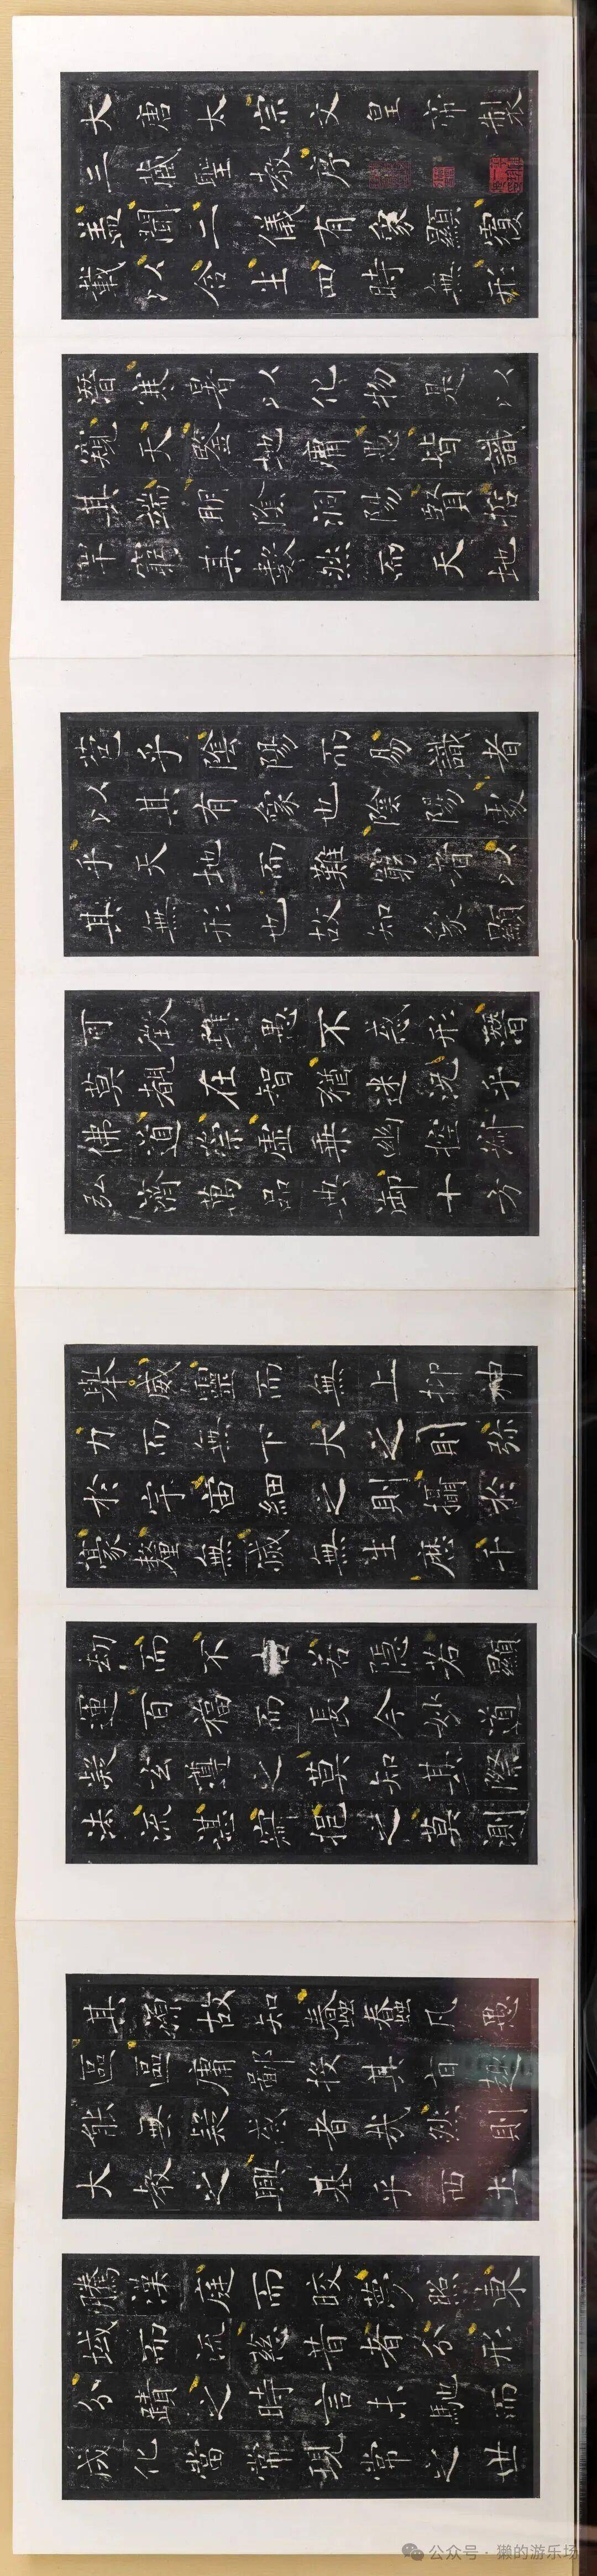 大唐太宗文皇帝製
三藏聖教序
蓋聞二儀有象顯覆
載以含生四時無形
潛寒暑以化物是以
窺天鑒地庸愚皆識
其端明陰洞陽賢哲
罕窮其數然而天地
苞乎陰陽而易識者
以其有象也陰陽處
乎天地而難窮者以
其無形也故知象顯
可徵雖愚不惑形潛
莫覩在智猶迷況乎
佛道崇虛乘幽控寂
弘濟萬品典御十方
舉威靈而無上抑神
力而無下大之則弥
於宇宙細之則攝於
豪釐無滅無生歷千
劫而不古若隱若顯
運百福而長今妙道
凝玄遵之莫知其際
法流湛寂挹之莫測
其源故知蠢蠢凡愚
區區庸鄙投其旨趣
能無疑惑者哉然則
大教之興基乎西土
騰漢庭而皎夢照東
域而流慈昔者分形
分蹟之時言未馳而
成化當常現常之世
公众号 · 獭的游乐场